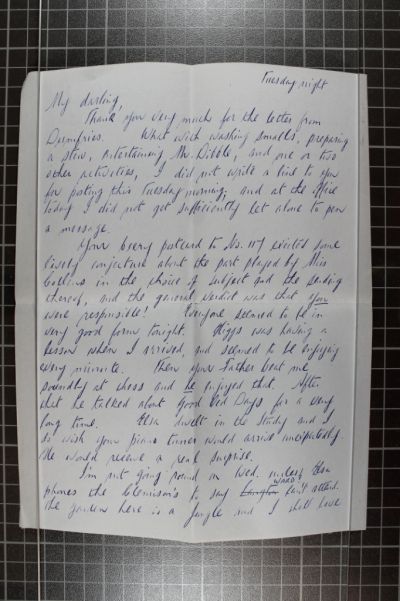 Tuesday night
My darling,
Thank you very much for the letter from
Dumfries. What with washing smalls, preparing
a stew, entertaining Mr. Dibble, and one or two
other activities, I did not write a line to you
for posting this Tuesday morning; and at the office
today I did not get sufficiently let alone to pen
a message.
Your postcard to No. 117 excited some
lively conjecture about the part played by Miss
Collins in the choice of subject and the sending
thereof, and the general verdict was that you
were responsible! Everyone seemed to be in
very good form tonight. Higgs was having a
lesson when I arrived, and seemed to be enjoying
every minute. Then your Father beat me
soundly at chess and he enjoyed that. After
that he talked about Good Old Days for a very
long time. Elsa dwelt in the study and I
do wish your piano tuner would arrive unexpectedly.
He would receive a real surprise.
I'm not going round on Wed. unless Elsa
phones the to say WARD can't attend.
The garden here is a jungle and I shall have